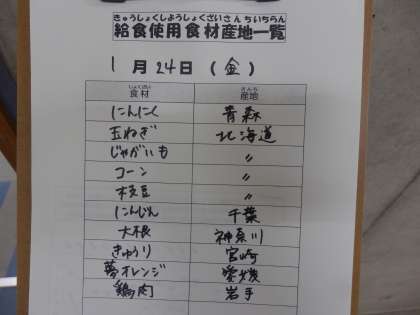 きゅうしょくしようしょくざいさんちいちらん
給食使用食材産地一覧
1月24日(金)
しょくざい さんち
食材 産地
にんにく 青森
玉ねぎ 北海道
じゃがいも 〃
コーン 〃
枝豆 〃
にんじん 千葉
大根 神奈川
きゅうり 宮崎
夢オレンジ 愛媛
鶏肉 岩手